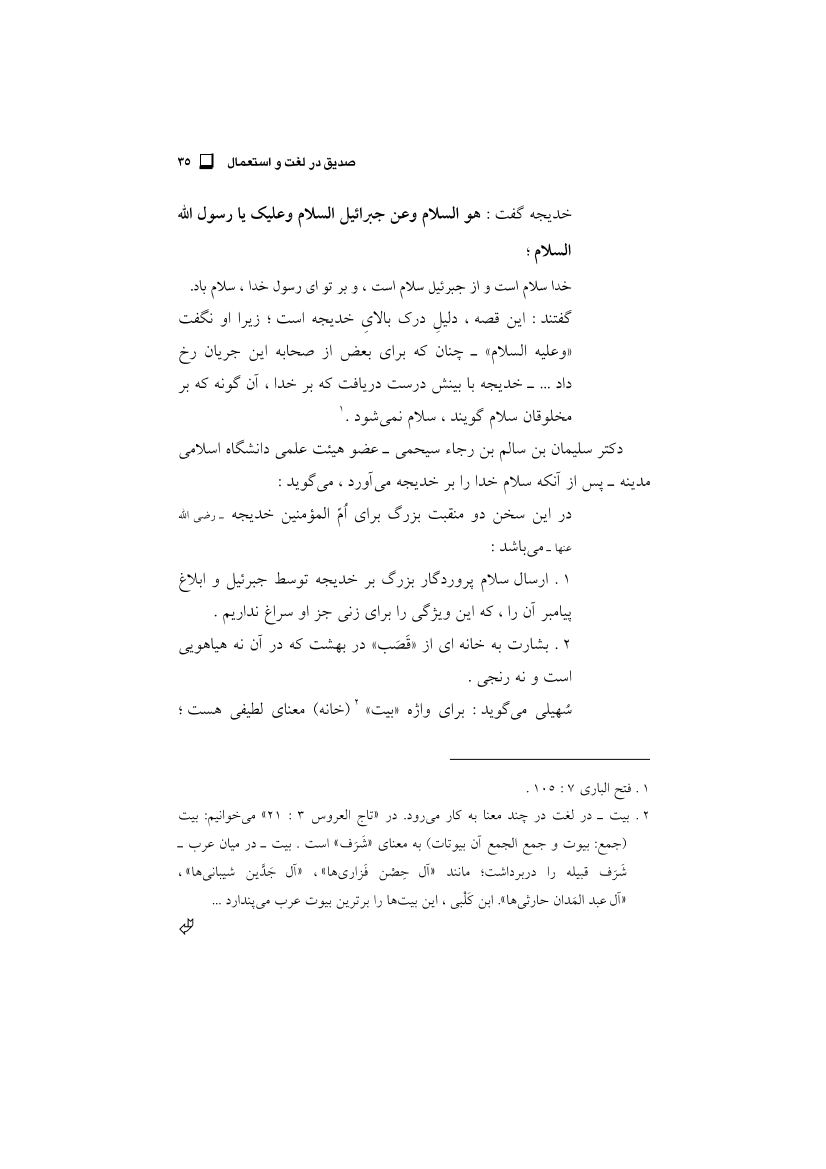 صدیق در لغت و استعمال ❑ ۳۵
خدیجه گفت : هو السلام وعن جبرائیل السلام وعلیک یا رسول الله
السلام ؛
خدا سلام است و از جبرئیل سلام است ، و بر تو ای رسول خدا ، سلام باد.
گفتند : این قصه ، دلیلِ درک بالایِ خدیجه است ؛ زیرا او نگفت
«وعلیه السلام» ـ چنان که برای بعض از صحابه این جریان رخ
داد ... ـ خدیجه با بینش درست دریافت که بر خدا ، آن گونه که بر
مخلوقان سلام گویند ، سلام نمی‌شود .۱
دکتر سلیمان بن سالم بن رجاء سیحمی ـ عضو هیئت علمی دانشگاه اسلامی
مدینه ـ پس از آنکه سلام خدا را بر خدیجه می‌آورد ، می‌گوید :
در این سخن دو منقبت بزرگ برای اُمّ المؤمنین خدیجه ـ رضی الله
عنها ـ می‌باشد :
۱ . ارسال سلام پروردگار بزرگ بر خدیجه توسط جبرئیل و ابلاغ
پیامبر آن را ، که این ویژگی را برای زنی جز او سراغ نداریم .
۲ . بشارت به خانه ای از «قَصَب» در بهشت که در آن نه هیاهویی
است و نه رنجی .
سُهیلی می‌گوید : برای واژه «بیت» ۲ (خانه) معنای لطیفی هست ؛
۱ . فتح الباری ۷ : ۱۰۵ .
۲ . بیت ـ در لغت در چند معنا به کار می‌رود. در «تاج العروس ۳ : ۲۱» می‌خوانیم: بیت
(جمع: بیوت و جمع الجمع آن بیوتات) به معنای «شَرَف» است . بیت ـ در میان عرب ـ
شَرَف قبیله را دربرداشت؛ مانند «آل حِصْن فَزاری‌ها» ، «آل جَدَّین شیبانی‌ها» ،
«آل عبد المَدان حارثی‌ها». ابن کَلْبی ، این بیت‌ها را برترین بیوت عرب می‌پندارد ...